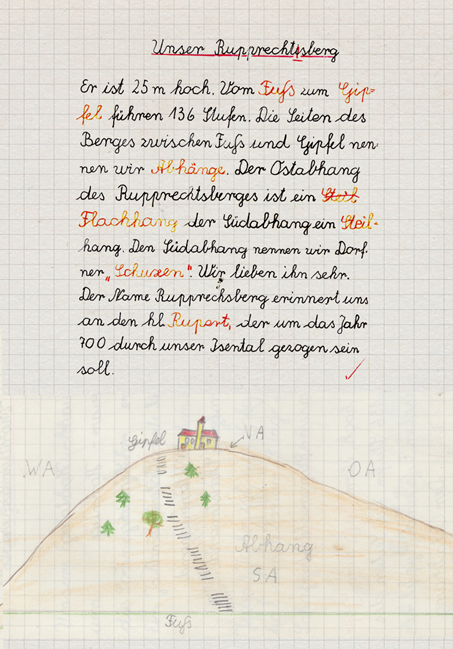 Unser Rupprechtsberg
Er ist 25 m hoch. Vom Fuß zum Gip=
fel führen 136 Stufen. Die Seiten des
Berges zwischen Fuß und Gipfel nen
nen wir Abhänge. Der Ostabhang
des Rupprechtsberges ist ein Steil
Flachhang der Südabhang ein Steil-
hang. Den Südabhang nennen wir Dorf.
ner „Schuxen". Wir lieben ihn sehr.
Der Name Rupprechsberg erinnert uns
an den hl. Rupart, der um das Jahr
700 durch unser Isental gezogen sein
soll.
Gipfel
VA
WA
OA
Abhang
SA
Fuß